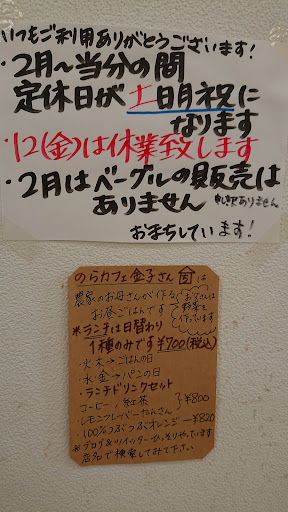 いつもご利用ありがとうございます!
・2月〜当分の間
定休日が土日月祝に
なります
・12(金)は休業致します
・2月はベーグルの販売は
ありません 申し訳ありません
お待ちしています!
のらカフェ金子さん 宮は
農家のお母さんが作る
お昼ごはんです
お父さんは
野菜を
作っています
*ランチは日替わり
1種のみです¥700(税込)
・火・木→ごはんの日
・水・金→パンの日
・ランチドリンクセット
コーヒー、紅茶
レモンフレーバーたんさん
}¥800
・100%つぶつぶオレンジー¥820
*ブログ&ツイッターひっそりやっています
店名で検索してみて下さい